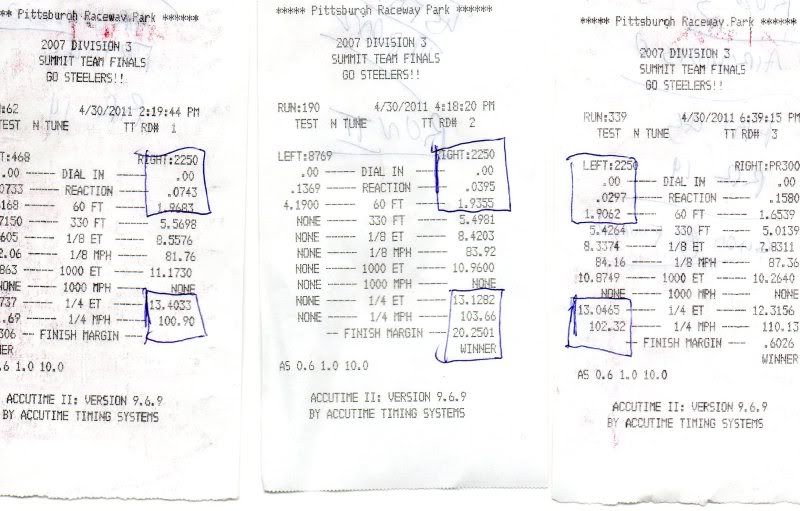 ** Pittsburgh Raceway Park ******
2007 DIVISION 3
SUMMIT TEAM FINALS
GO STEELERS!!
:62 4/30/2011 2:19:44 PM
TEST N TUNE TT RD# 1
T:468 RIGHT:2250
.00 ----- DIAL IN ----- .00
0733 ----- REACTION ----- .0743
168 ----- 60 FT ----- 1.9683
7150 ----- 330 FT ----- 5.5698
605 ----- 1/8 ET ----- 8.5576
2.06 ----- 1/8 MPH ----- 81.76
863 ----- 1000 ET ----- 11.1730
NONE ----- 1000 MPH ----- NONE
737 ----- 1/4 ET ----- 13.4033
.69 ----- 1/4 MPH ----- 100.90
306 -- FINISH MARGIN --
NER
.6 1.0 10.0
ACCUTIME II: VERSION 9.6.9
BY ACCUTIME TIMING SYSTEMS
***** Pittsburgh Raceway Park ******
2007 DIVISION 3
SUMMIT TEAM FINALS
GO STEELERS!!
RUN:190 4/30/2011 4:18:20 PM
TEST N TUNE TT RD# 2
LEFT:8769 RIGHT:2250
.00 ----- DIAL IN ----- .00
.1369 ----- REACTION ----- .0395
4.1900 ----- 60 FT ----- 1.9355
NONE ----- 330 FT ----- 5.4981
NONE ----- 1/8 ET ----- 8.4203
NONE ----- 1/8 MPH ----- 83.92
NONE ----- 1000 ET ----- 10.9600
NONE ----- 1000 MPH ----- NONE
NONE ----- 1/4 ET ----- 13.1282
NONE ----- 1/4 MPH ----- 103.66
-- FINISH MARGIN -- 20.2501
WINNER
AS 0.6 1.0 10.0
ACCUTIME II: VERSION 9.6.9
BY ACCUTIME TIMING SYSTEMS
***** Pittsburgh Raceway Park ******
2007 DIVISION 3
SUMMIT TEAM FINALS
GO STEELERS!!
RUN:339 4/30/2011 6:39:15 PM
TEST N TUNE TT RD# 3
LEFT:2250 RIGHT:PR300
.00 ----- DIAL IN ----- .00
.0297 ----- REACTION ----- .1580
1.9062 ----- 60 FT ----- 1.6539
5.4264 ----- 330 FT ----- 5.0139
8.3374 ----- 1/8 ET ----- 7.8311
84.16 ----- 1/8 MPH ----- 87.36
10.8749 ----- 1000 ET ----- 10.2640
NONE ----- 1000 MPH ----- NONE
13.0465 ----- 1/4 ET ----- 12.3156
102.32 ----- 1/4 MPH ----- 110.13
-- FINISH MARGIN -- .6026
WINNER
AS 0.6 1.0 10.0
ACCUTIME II: VERSION 9.6.9
BY ACCUTIME TIMING SYSTEMS